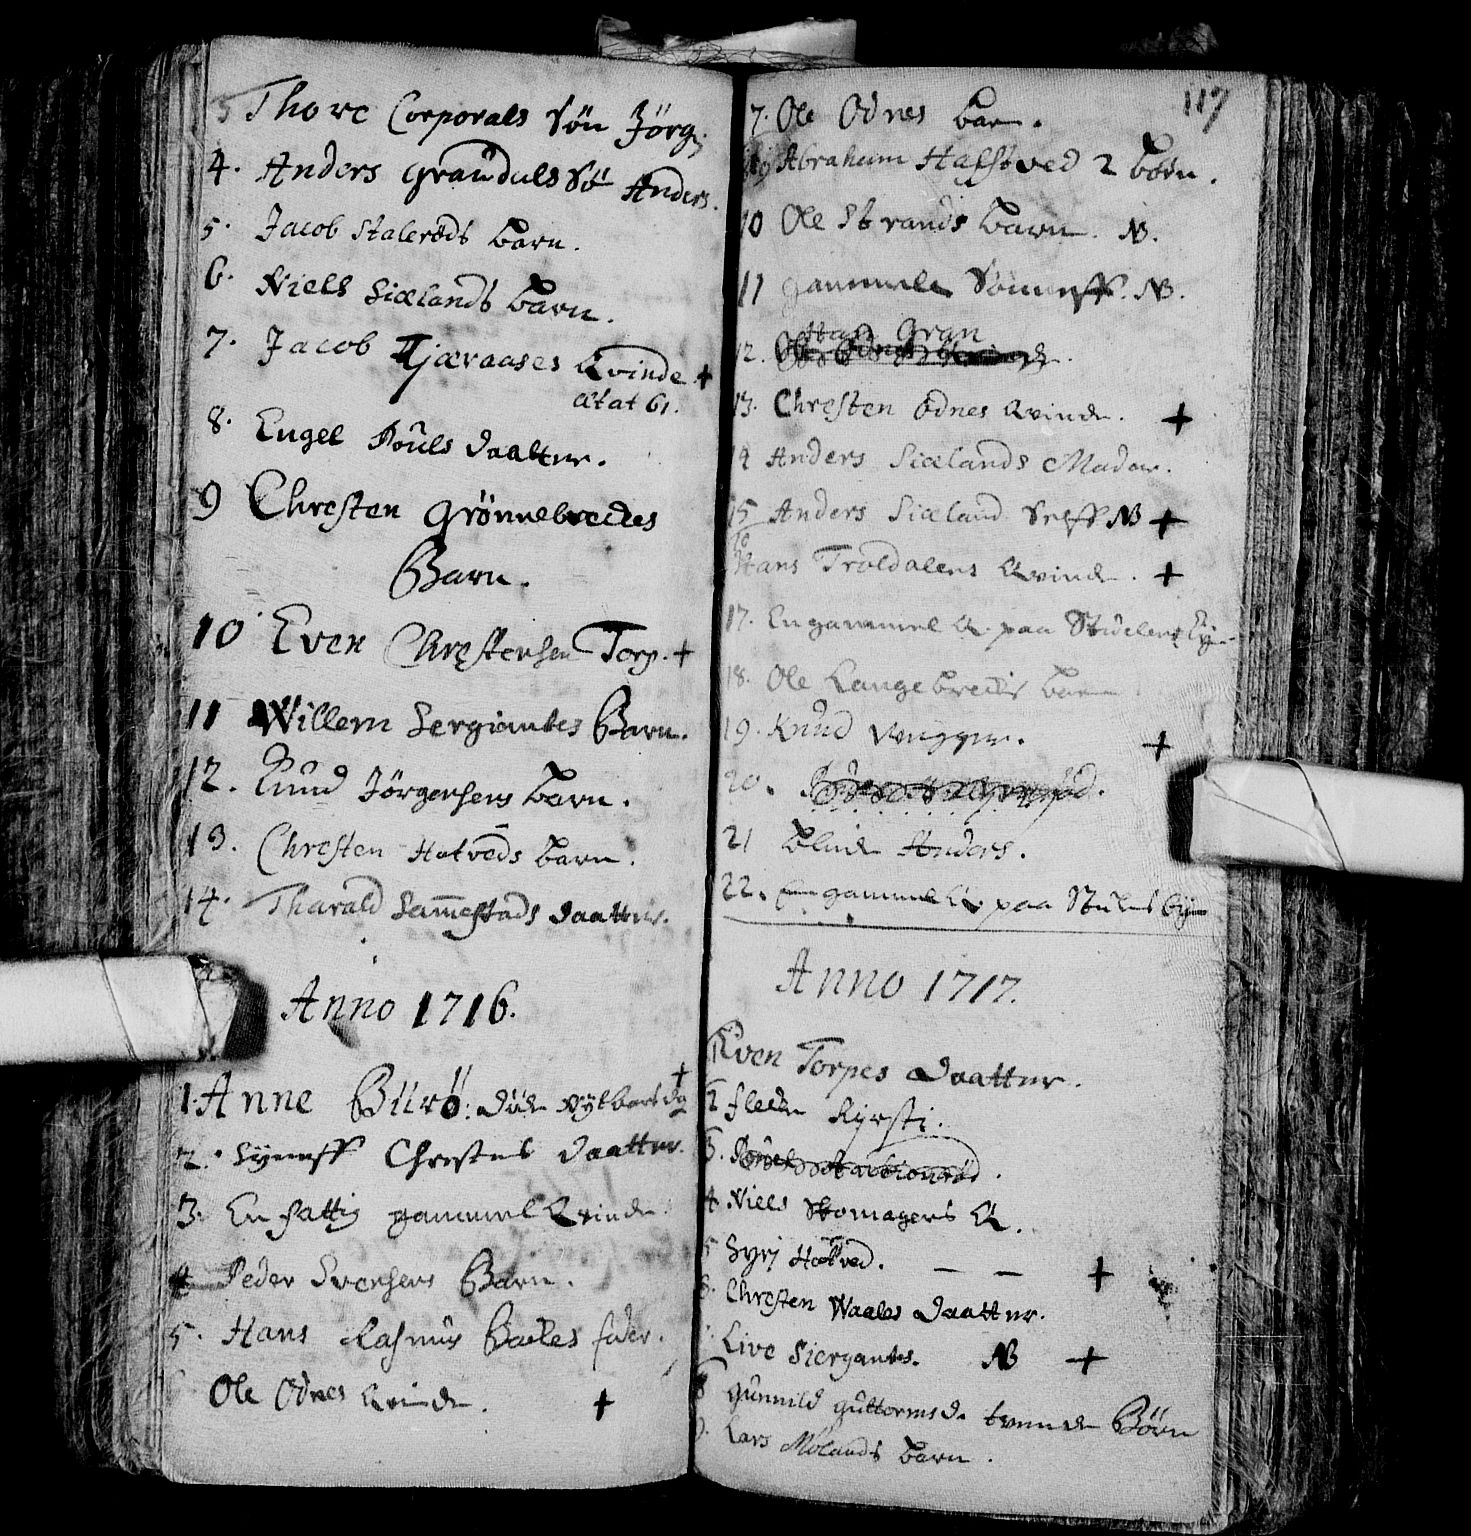 3 Thore Corporals Søn Jørg.
4. Anders Grandals Sø Anders.
5. Jacob Stalerøds barn.
6. Niels Siælands barn.
7. Jacob Kjæraases Qvinde +
ætat 61.
8. Engel Pouls daatter.
9 Chresten Grønnebreches
Barn.
10 Even Chrestensen Torp. +
11 Willem Sergiantes Barn.
12. Knud Jørgensens barn.
13. Chresten Hotveds barn.
14. Tharald Sam̄estads daatter.
Anno 1716.
+
1. Anne Bürö: døde
2. Chrestens daatter.
3. En fattig gammel Qvinde.
4 Peder Iversens Barn.
5. Hans Rasmus Backes fader.
Ole Odnes Qvinde. +
117
7. Ole Odnes barn.
Abraham Halfved 2 børn.
10 Ole Strands barn. NB.
11 gammele NB.
Hans Gran
12.
13. Chresten Odnes Qvinde. +
14 Anders Siælands Moder.
15 Anders Siæland Selff NB +
16
Hans Troldalens Qvinde. +
17. En gammel Q. paa
18. Ole Langebreches barn
19. Knud +
20.
21 blinde Anders.
22. En gammel Q paa
Anno 1717.
1 Even Torpes daatter.
2 Kirsti.
3.
4 Niels Skomagers Q.
5 Syri Hotved. — — +
6. Chresten Waales daatter.
Live Siergantes. NB +
8 Gunnild Guttormsd. tvende Børn
9. Lars Mølands barn.